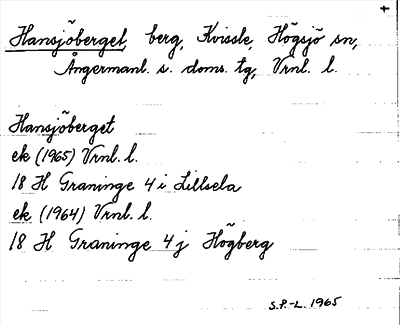 Hansjöberget, berg, Kvissle, Högsjö sn,
Ångermanl. s. doms. tg, Vrnl. l.
Hansjöberget
ek (1965) Vrnl. l.
18 H Graninge 4 i Lillsela
ek (1964) Vrnl. l.
18 H Graninge 4 j Högberg
S.P.-L. 1965